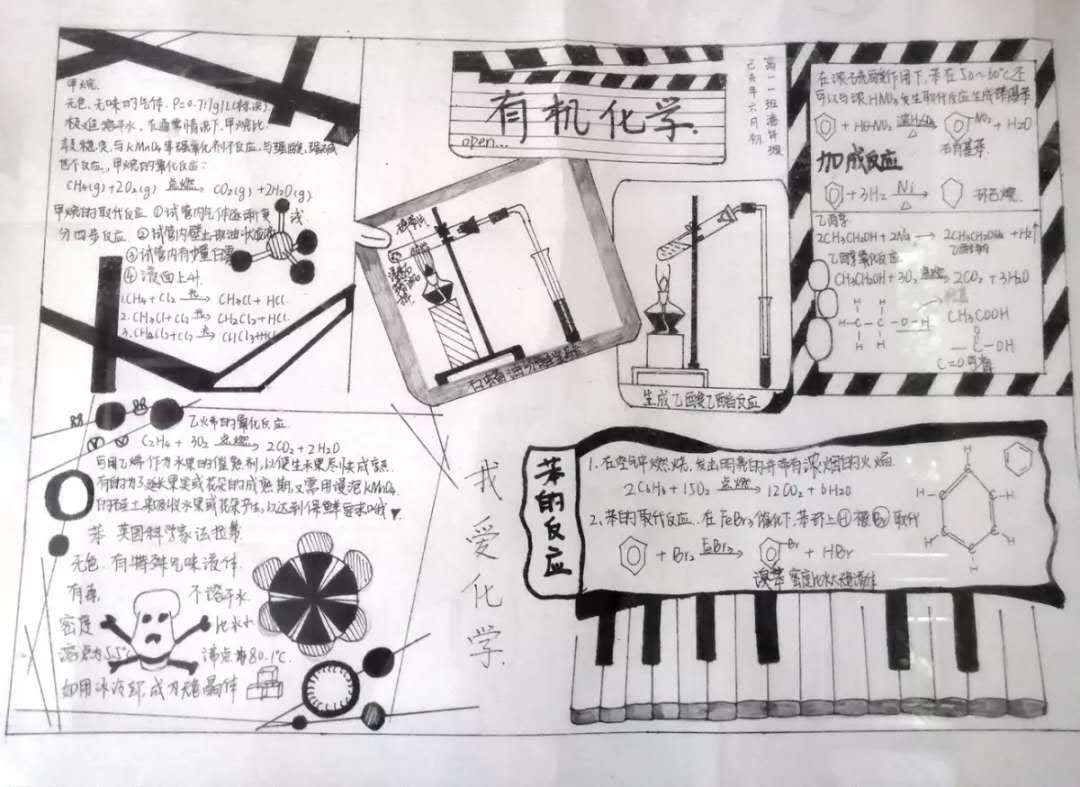 甲烷
无色、无味的气体. ρ=0.717g/L(标况)
极难溶于水,在通常情况下.甲烷比
较稳定,与KMnO4等强氧化剂不反应,与强酸、强碱
也不反应,甲烷的氧化反应:
CH4(g)+2O2(g) 点燃 CO2(g)+2H2O(g)
甲烷的取代反应 ①试管内气体逐渐变浅
分四步反应 ②试管内壁出现油状液滴
③试管内有少量白雾
④液面上升.
1.CH4+Cl2 光 CH3Cl+HCl.
2.CH3Cl+Cl2 光 CH2Cl2+HCl.
3.CH2Cl2+Cl2 光 CHCl3+HCl
open...
有机化学.
高一一班
己亥年六月初
石蜡油分解实验
生成乙酸乙酯反应
可以与浓HNO3发生取代反应生成硝基苯
+ HO-NO2 浓H2SO4 △ NO2 + H2O
硝基苯.
加成反应
+3H2 Ni △ 环己烷.
乙醇
2CH3CH2OH + 2Na → 2CH3CH2ONa + H2↑
乙醇钠
乙醇氧化反应
CH3CH2OH + 3O2 点燃 2CO2 + 3H2O
H H
H-C-C-O-H
H H
CH3COOH
O
C-OH
C=O
乙烯的氧化反应.
C2H4 + 3O2 点燃 2CO2+2H2O
可用乙烯作为水果的催熟剂,以使生水果尽快成熟.
有时为了延长果实或花朵的成熟期,又需用浸泡KMnO4
的硅土来吸收水果或花朵产生,以达到保鲜要求
苯 英国科学家法拉第
无色.有特殊气味液体.
有毒, 不溶于水.
密度 比水小
熔点为5.5℃ 沸点为80.1℃.
如用冰冷却,成无色晶体
我爱化学.
苯的反应
1.在空气中燃烧,发出明亮的并带有浓烟的火焰.
2C6H6 + 15O2 点燃 12CO2 + 6H2O
2、苯的取代反应.在FeBr3催化下,苯环上H被Br取代
+ Br2 FeBr3 Br + HBr
溴苯 密度比水大
H
H H
H H
H